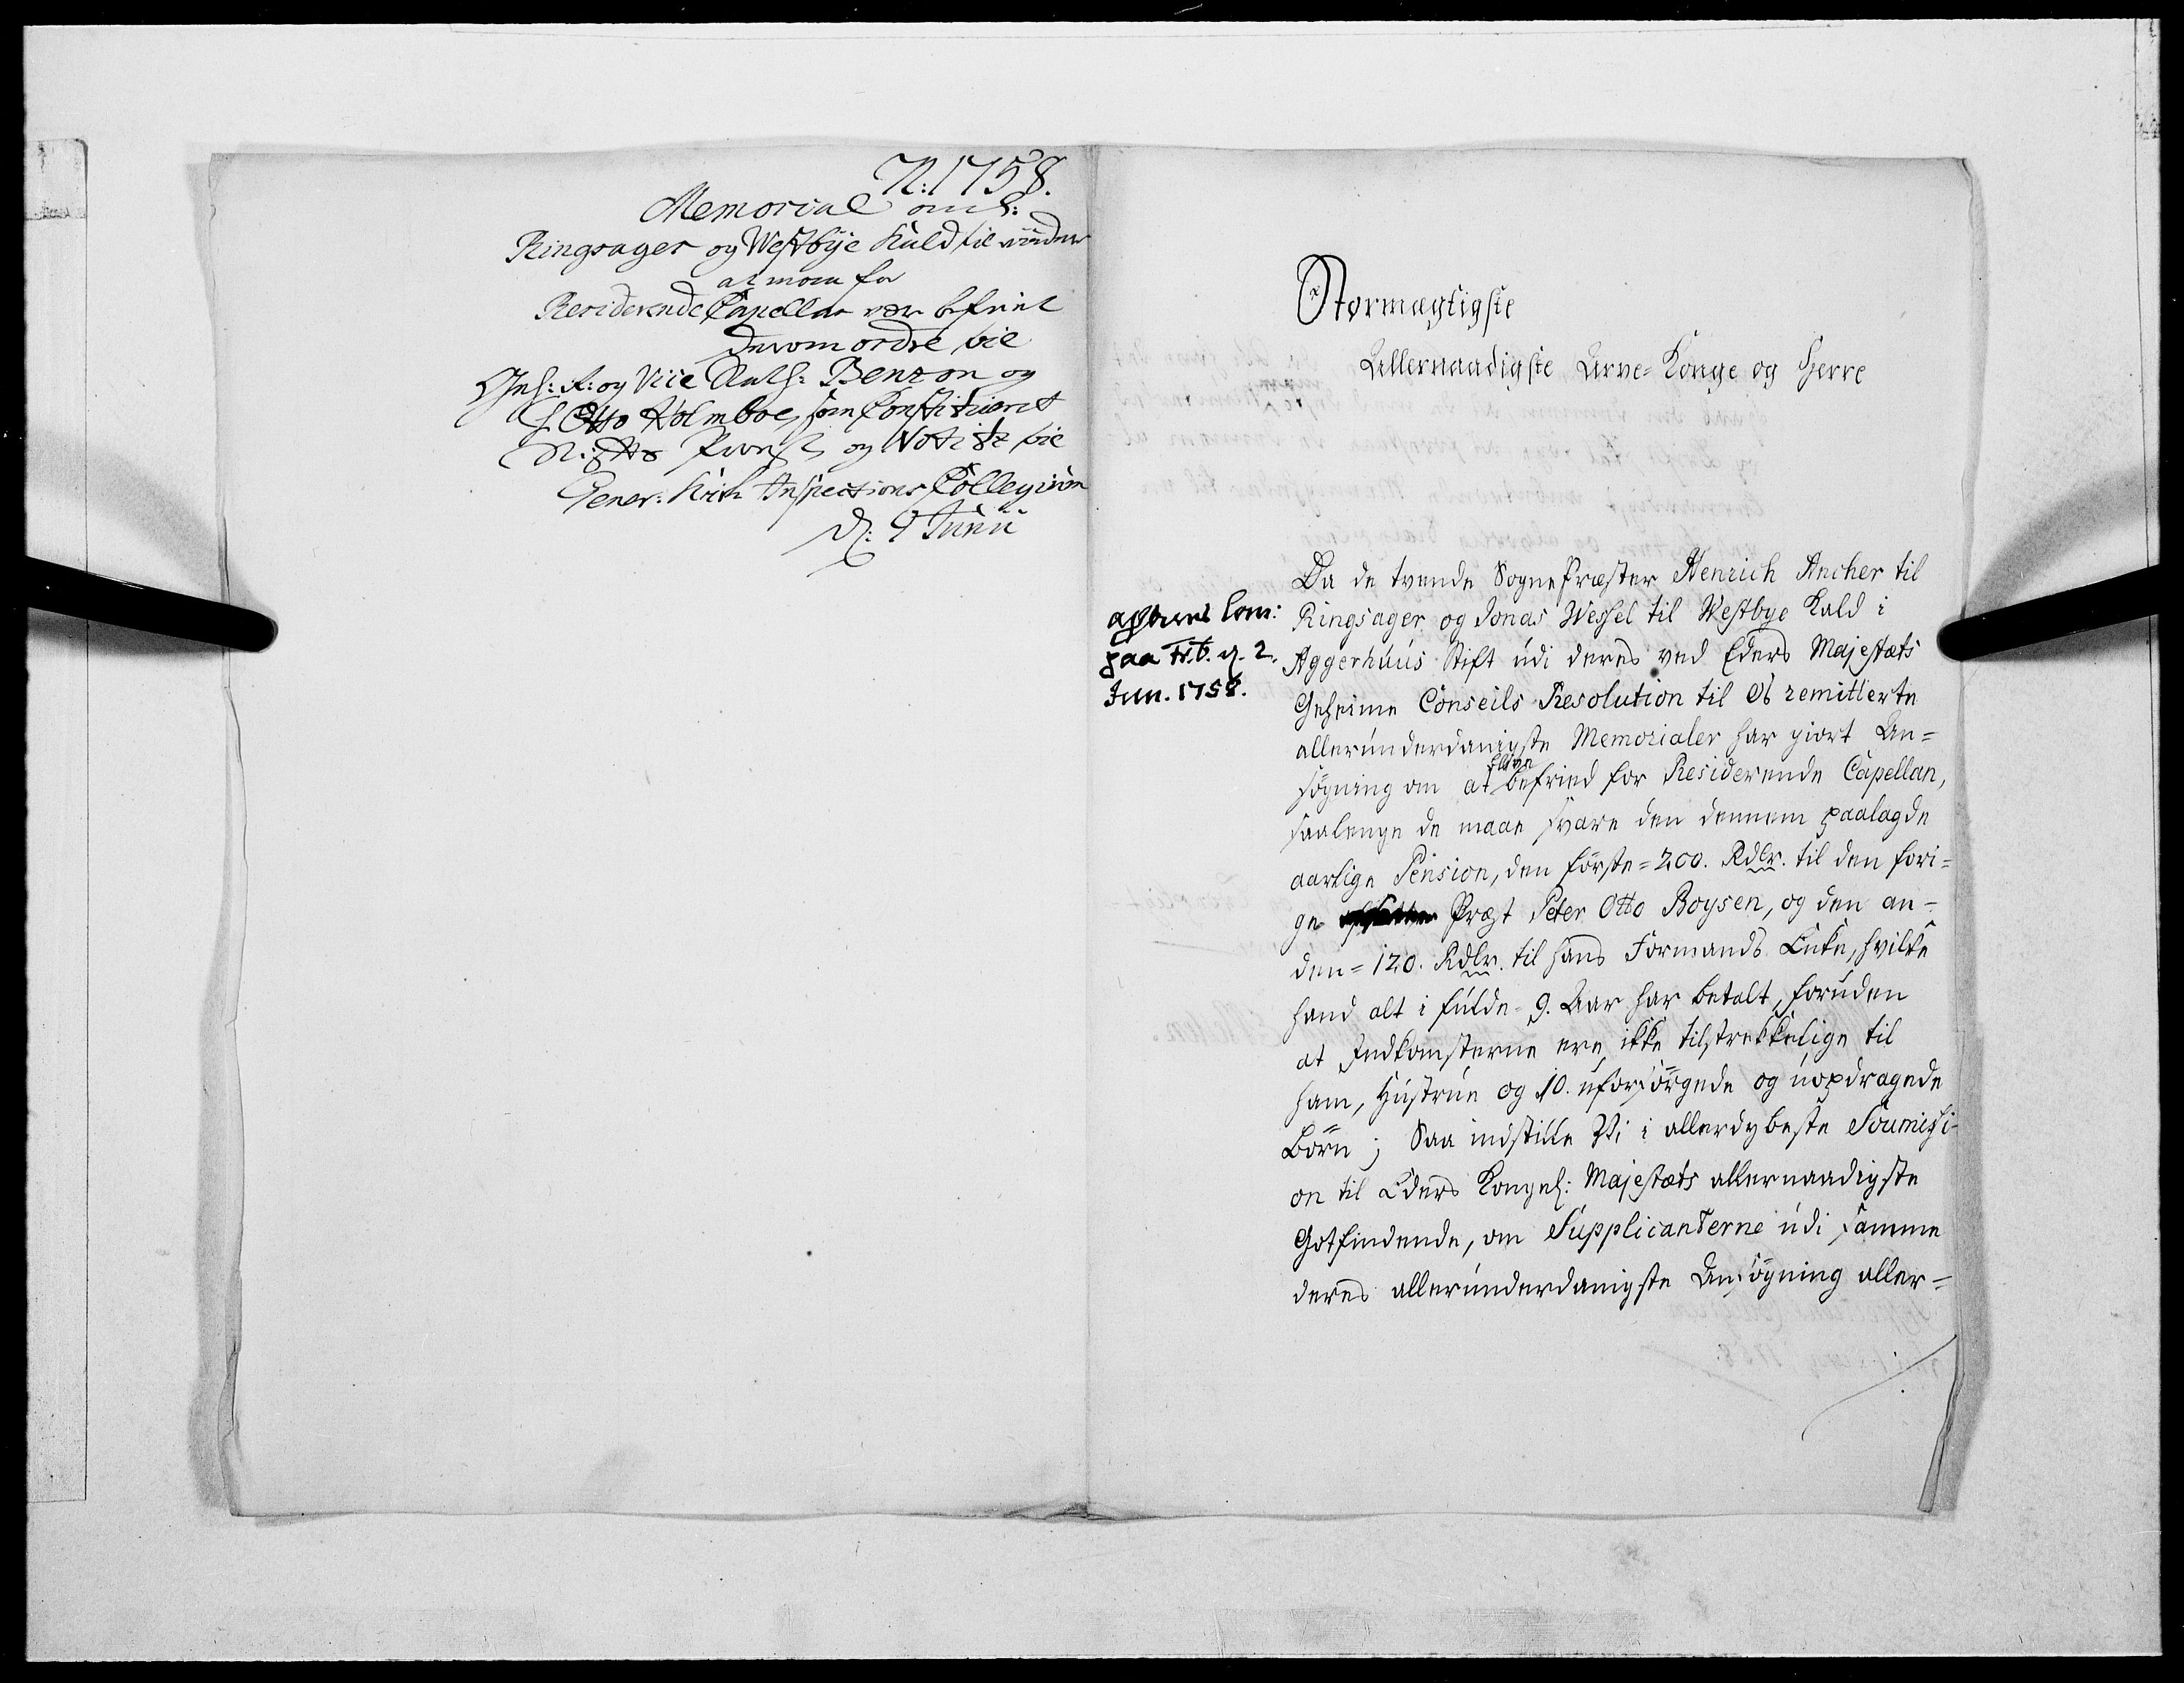 N: 1758.
Memorial anl:
Ringsager og Westbÿe Kald til
at maa for
Residerende Capellan være befriet
derom ordre til
og Vice Stath: Benzon og
Otto Holmboe, som Constitueret
og Notitz til
Gener: Kirk Inspections Collegium
d: 9 Junii
Stormægtigste
Allernaadigste Arve-Konge og Herre
afskrevet Com:
paa Fr.b. d. 2.
Jun. 1758.
Da de tvende Sogne Præster Henrich Ancher til
Ringsager og Jonas Wessel til Westbye Kald i
Aggerhuus Stift udi deres ved Eders Majestæts
Geheime Conseils Resolution til Os remitterte
allerunderdanigste Memorialer har giort An-
søgning om at blive befried for Residerende Capellan,
saalenge de maae svare den dennem paalagde
aarlige Pension, den første = 200. Rdlr. til den fori-
ge Præst Peter Otto Boysen, og den an-
den = 120. Rdlr. til hans Formands Enke, hvilke
hand alt i fulde 9. Aar har betalt, foruden
at Indkomsterne ere ikke tilstrekkelige til
ham, Hustrue og 10. uforsørgede og uopdragede
Børn; Saa indstille Vi i allerdybeste Soumissi-
on til Eders Kongel: Majestæts allernaadigste
Gotfindende, om Supplicanterne udi samme
deres allerunderdanigste Ansøgning aller-